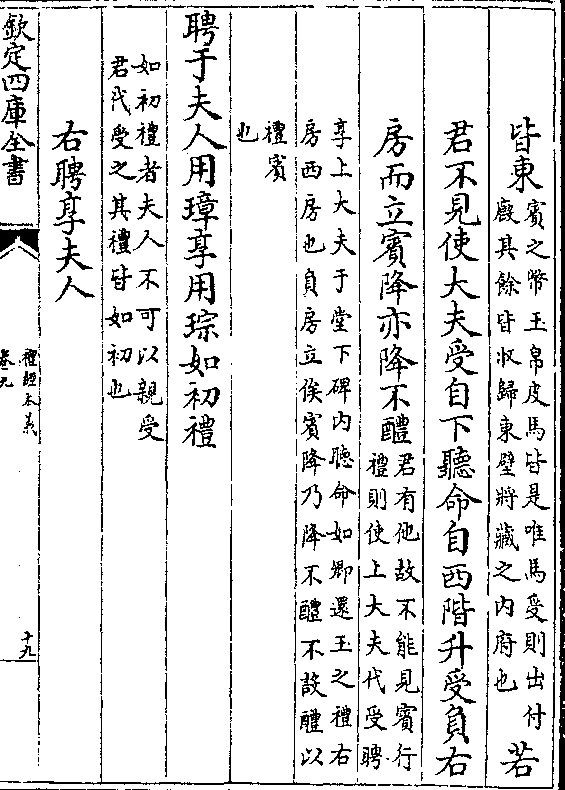 皆東賓之幣玉帛皮馬皆是唯馬受則出付
廄其餘皆收歸東壁將藏之内府也若
君不見使大夫受自下聽命自西階升受負右
房而立賓降亦降不醴君有他故不能見賓行
禮則使上大夫代受聘
享上大夫于堂下碑内聽命如卿還玉之禮右
房西房也負房立俟賓降乃降不醴不設醴以
禮賓
也
聘于夫人用璋享用琮如初禮
如初禮者夫人不可以親受
君代受之其禮皆如初也
右聘享夫人
欽定四庫全書
禮經本義
卷九
十九